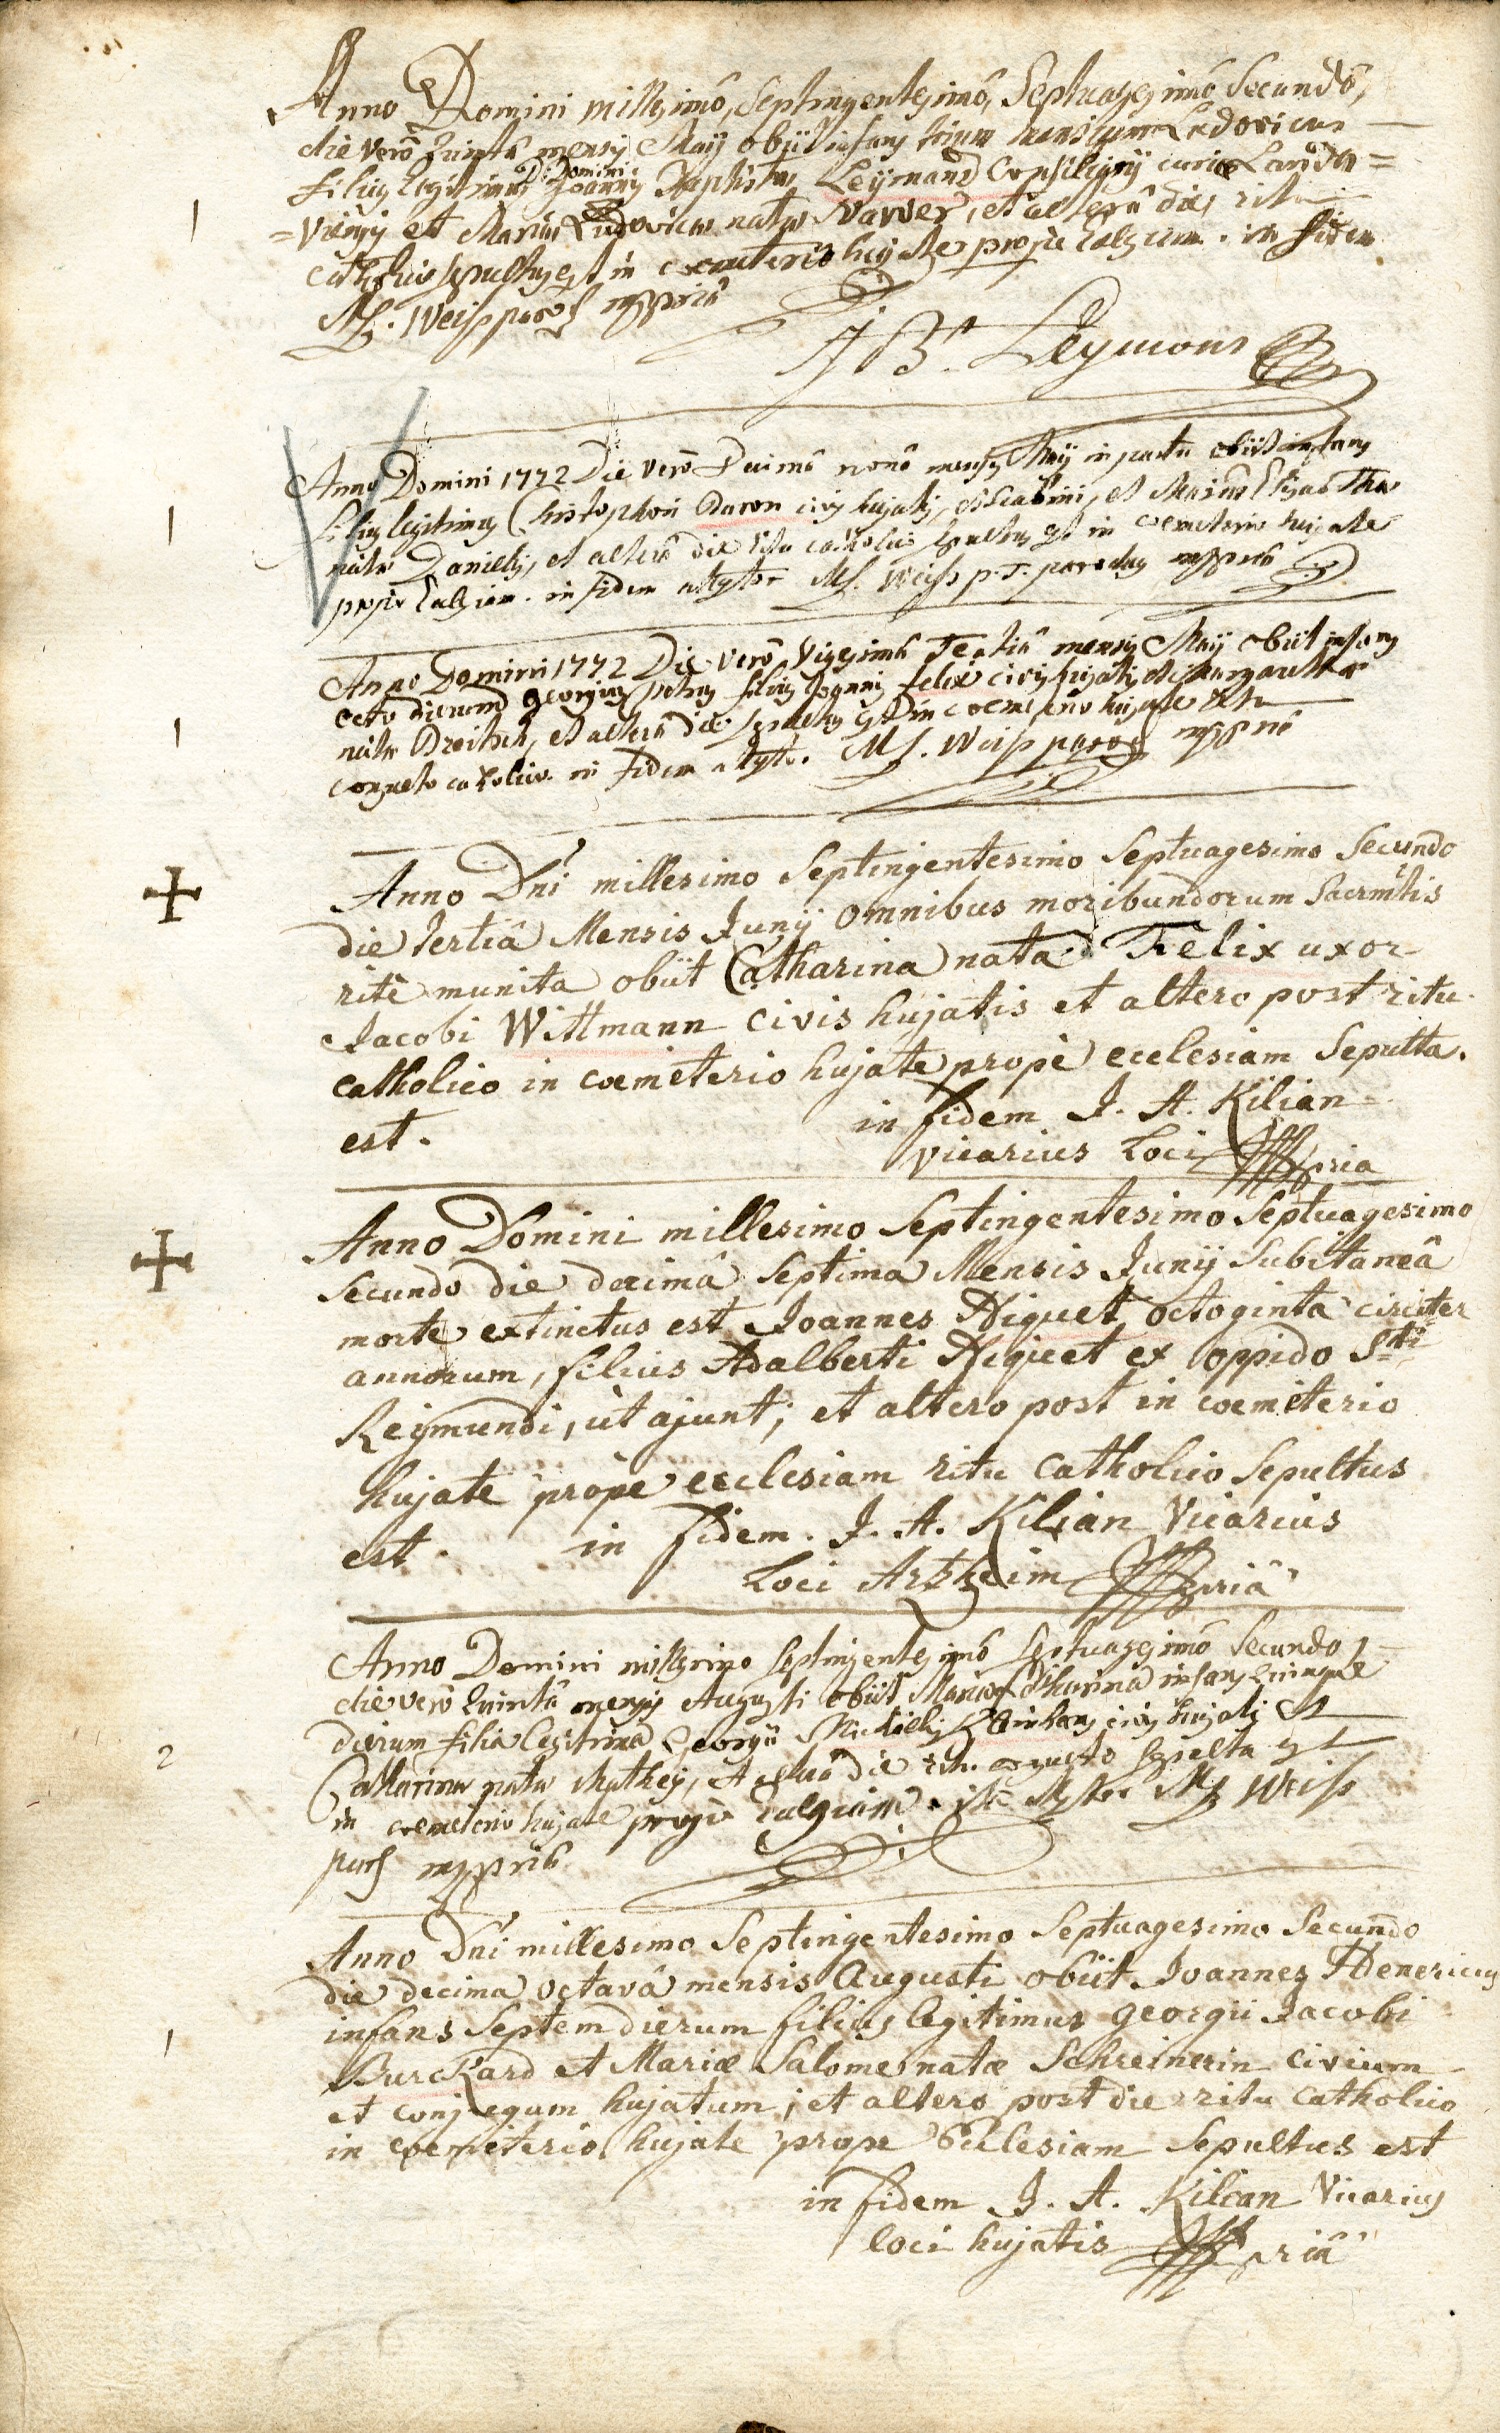 Anno Domini millesimô, Septingentesimô, Septuagesimô Secundô,
die verô Quintâ mensis Maij obijt infans trium mensium Ludovicus
filius legitimus D: Domini Joannis Baptistæ Leÿmand Consiliarij curiæ Landa=
=viensis et Mariæ Ludovicæ natæ Navver, et alterâ die, ritu
catholico sepultus est in coemeterio hujate propè Ecclesiam. in fidem
Ms. Weiss
J Bt Leÿmons
1
Anno Domini 1772 Die verô Decimâ nonâ mensis Maij in partu obiit infans
filius legitimus Christophori Daron civis hujatis, et scabini, et Mariæ Elisabethæ
natæ Danielis, et alterâ die ritu catholico sepultus est in coemeterio hujate
propè Ecclesiam. in fidem attestor Ms. Weiss p. t. parochus mppriâ
1
Anno Domini 1772 Die verô Vigesimâ Tertiâ mensis Maij obiit infans
octo dierum Georgius Petrus filius Joannis Felix civis hujatis et Margarethæ
natæ et alterâ die sepultus est in coemeterio hujate ritu
consueto catholico. in fidem attestor. Ms. Weiss paroch mppriâ
1
Anno Dni millesimo Septingentesimo Septuagesimo Secundo
die Tertiâ Mensis Junij omnibus moribundorum Sacrmtis
ritè munita obiit Catharina nata Felix uxor
Jacobi Wittmann civis hujatis et altero post ritu
catholico in coemeterio hujate propè ecclesiam Sepulta
est.
in fidem J. A. Kilian
vicarius Loci mppria
Anno Domini millesimo Septingentesimo Septuagesimo
Secundo die decimâ Septima Mensis Junij Subitaneâ
morte extinctus est Joannes Niquet octoginta circiter
annorum, filius Adalberti Niquet ex oppido Sti
Reijmundi, ùt ajunt; et altero post in coemeterio
hujate propè ecclesiam ritu Catholico Sepultus
est. in fidem. J. A. Kilian Vicarius
Loci Artzheim mppriâ
Anno Domini millesimo septingentesimô septuagesimô Secundo,
die verô Quintâ mensis Augusti obiit Maria Catharina infans quinque
dierum filia legitima Georgii Michaelis Kleinhans civis hujatis et
Catharinæ natæ Matheÿ, et alterâ die ritu consueto sepulta est
in coemeterio hujate propè Ecclesiam. ità attestor Ms Weiss
paroch mppriâ
2
Anno Dni millesimo Septingentesimo Septuagesimo Secundo
die decima octavâ mensis Augusti obiit Joannes Henericus
infans Septem dierum filius legitimus georgii Jacobi
Burckard et Mariæ Salome natæ Schreinerin civium
et conjugum hujatum; et altero post die ritu catholico
in coemeterio hujate prope Ecclesiam Sepultus est
in fidem J. A. Kilian Vicarius
loci hujatis mppriâ
1